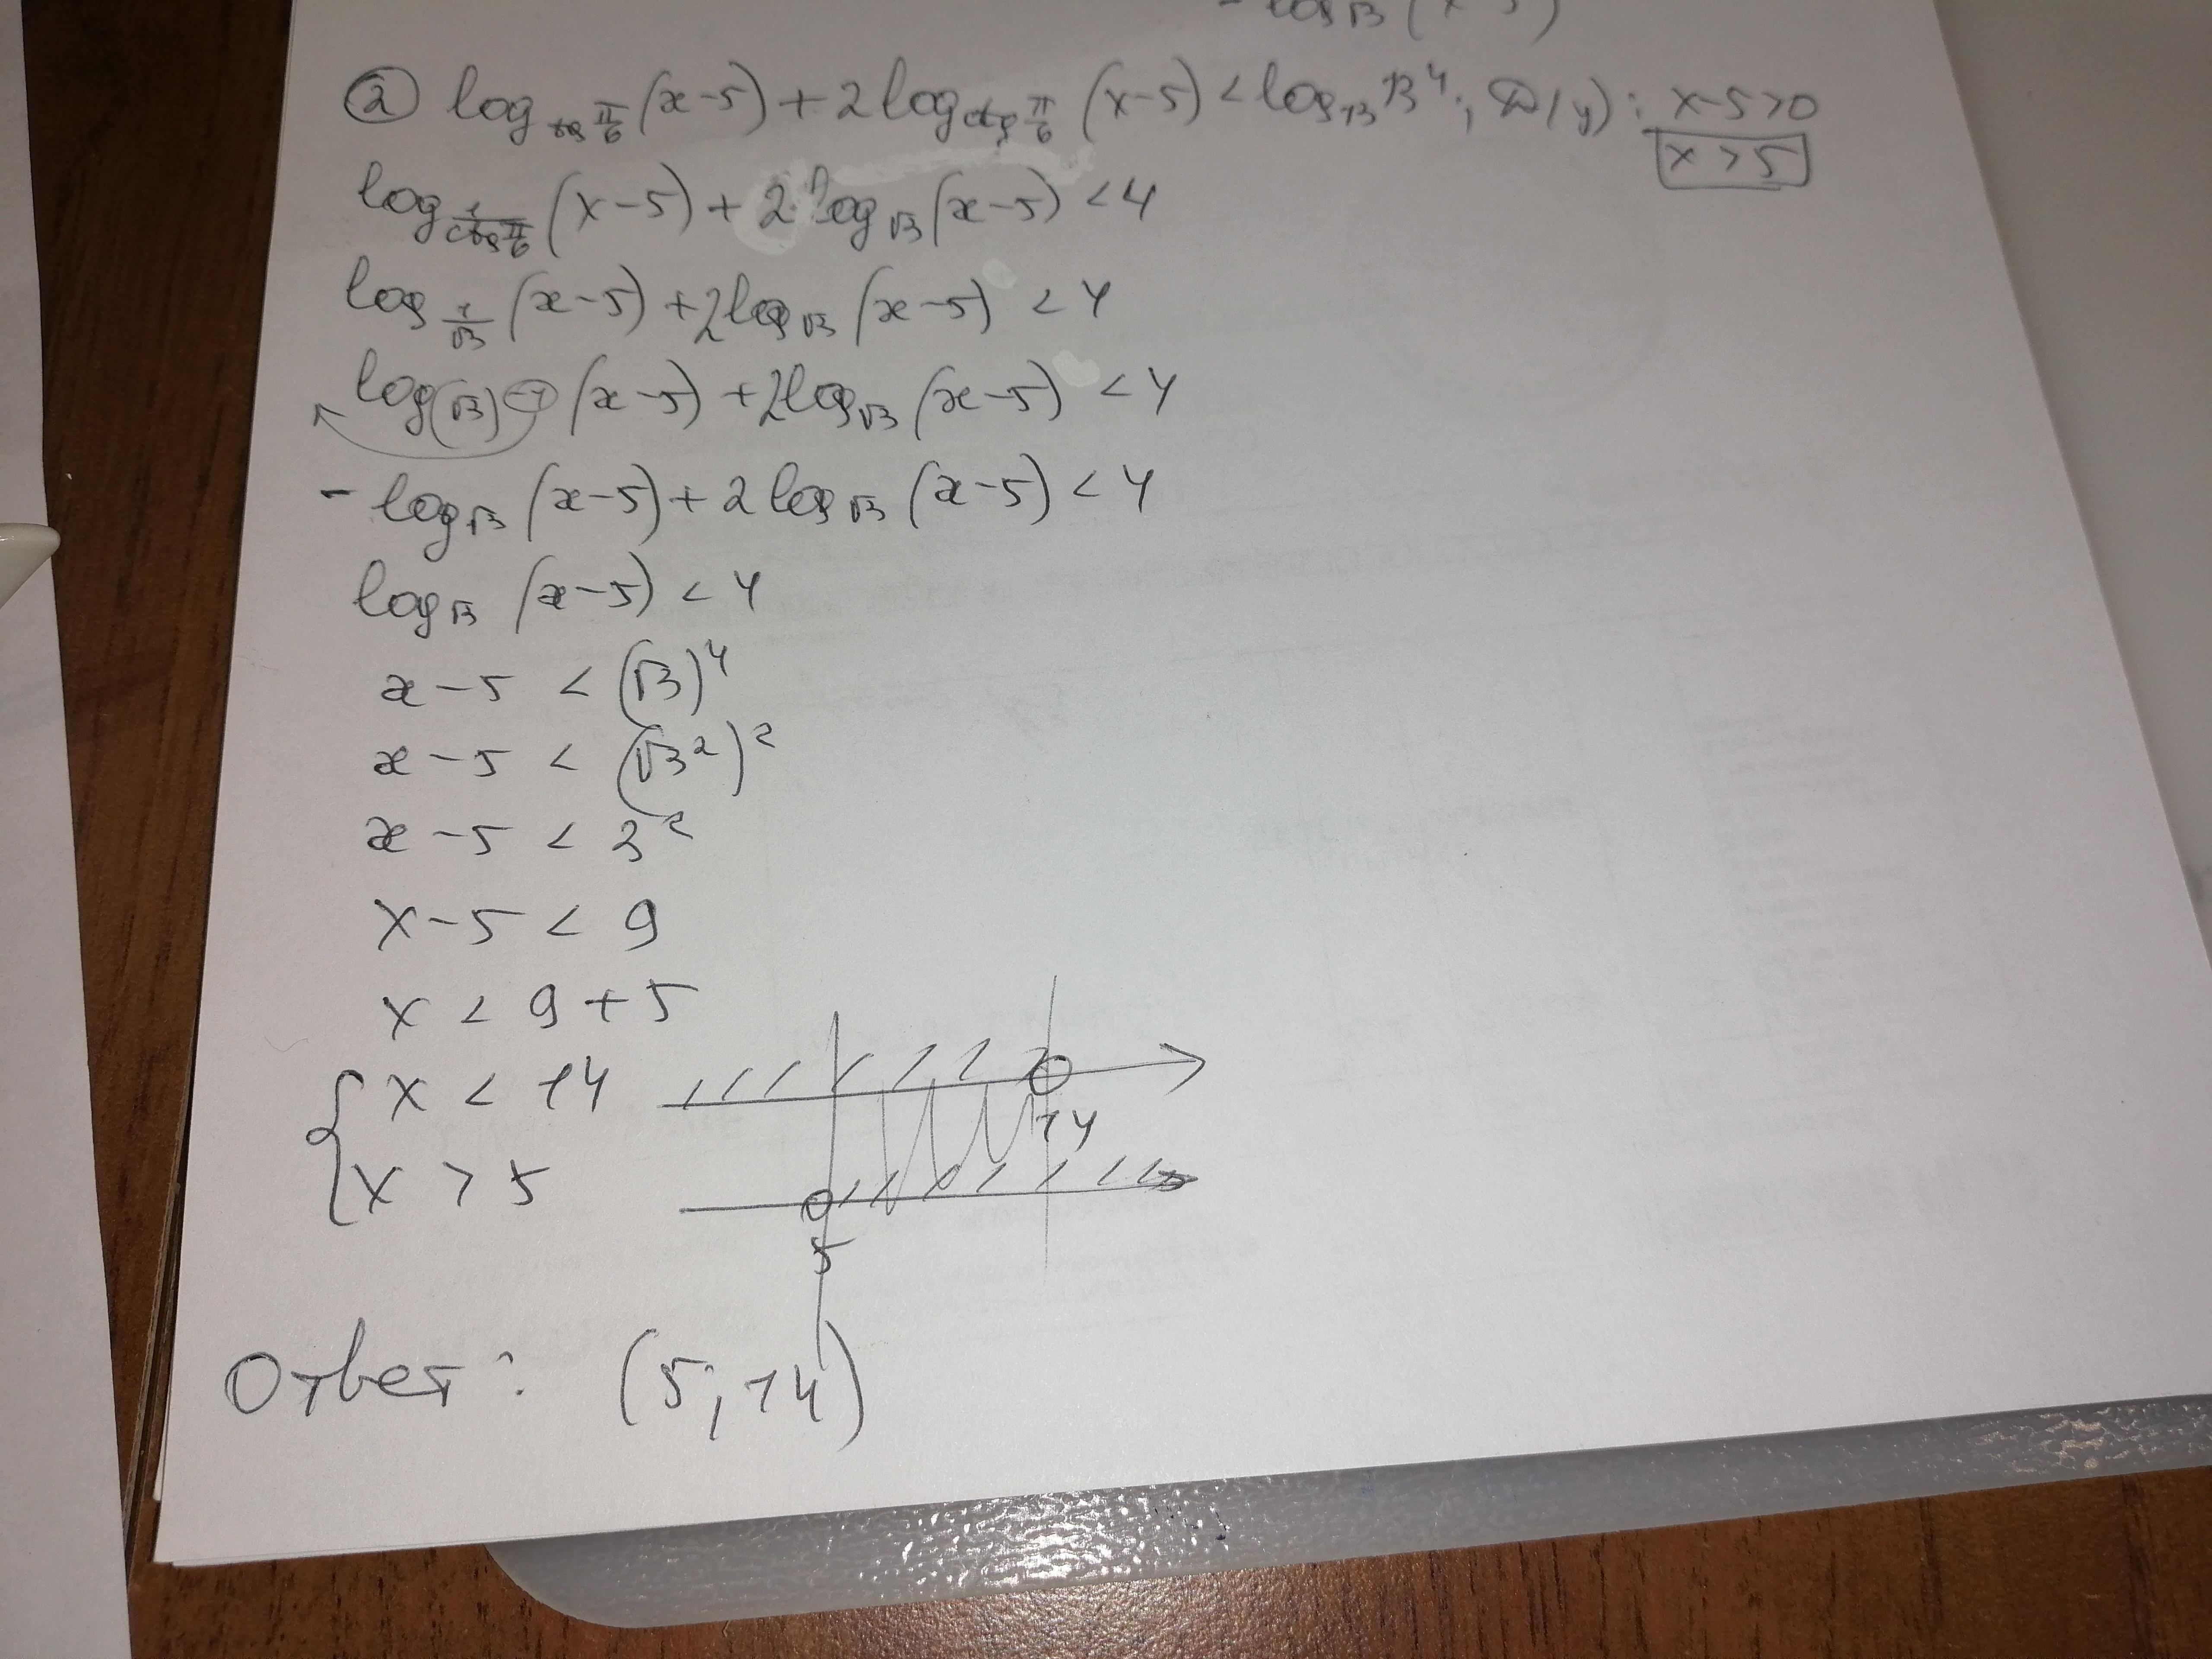 - log√3 (x-5)
② log tg π/6 (x-5) + 2 log ctg π/6 (x-5) < log√3 √3⁴; D(y): x-5>0
x > 5
log 1/ctg π/6 (x-5) + 2 log√3 (x-5) < 4
log 1/√3 (x-5) + 2 log√3 (x-5) < 4
log (√3)⁻¹ (x-5) + 2 log√3 (x-5) < 4
- log√3 (x-5) + 2 log√3 (x-5) < 4
log√3 (x-5) < 4
x - 5 < (√3)⁴
x - 5 < (√3²)²
x - 5 < 3²
x - 5 < 9
x < 9 + 5
{ x < 14
x > 5
14
5
Ответ: (5; 14)